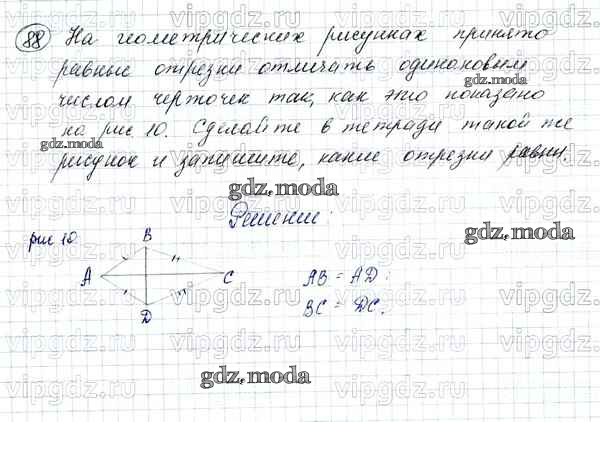 88 На геометрических рисунках принято
равные отрезки отмечать одинаковым
числом черточек так, как это показано
на рис 10. Сделайте в тетради такой же
рисунок и запишите, какие отрезки равны.
Решение:
рис 10
B
A
C
D
AB = AD;
BC = DC.
gdz.moda
gdz.moda
gdz.moda
gdz.moda
gdz.moda
vipgdz.ru